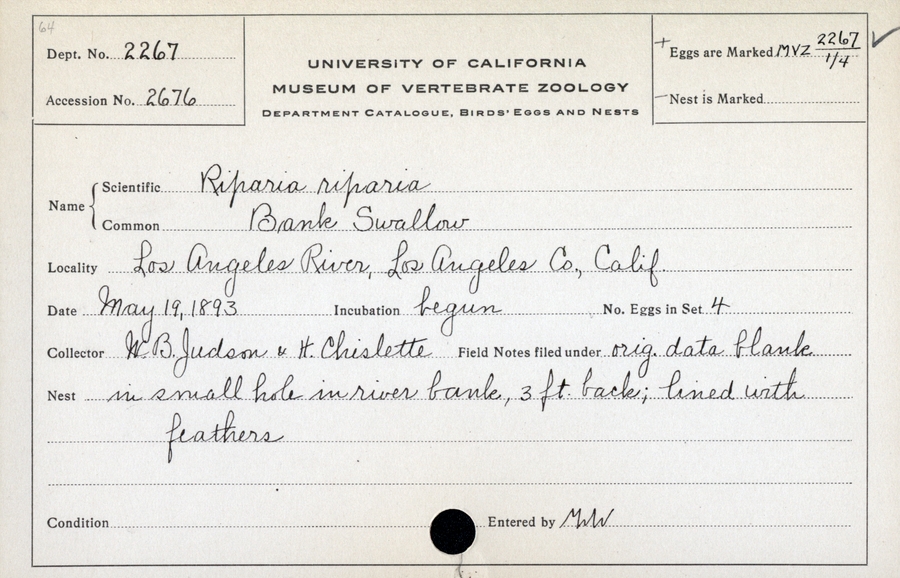 64
Dept. No. 2267
Accession No. 2676
UNIVERSITY OF CALIFORNIA
MUSEUM OF VERTEBRATE ZOOLOGY
DEPARTMENT CATALOGUE, BIRDS' EGGS AND NESTS
+ Eggs are Marked MVZ 2267 1/4
– Nest is Marked
Name
Scientific Riparia riparia
Common Bank Swallow
Locality Los Angeles River, Los Angeles Co., Calif.
Date May 19, 1893 Incubation begun No. Eggs in Set 4
Collector W.B. Judson & H. Chislette Field Notes filed under orig. data blank
Nest in small hole in river bank, 3 ft. back; lined with
feathers
Condition Entered by